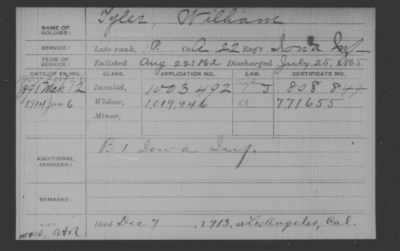 NAME OF SOLDIER: Tyler, William
SERVICE: Late rank, P. Co. A 22 Reg't Iowa Inf
TERM OF SERVICE: Enlisted Aug 22 1862 Discharged July 25, 1865
DATE OF FILING. CLASS. APPLICATION NO. LAW. CERTIFICATE NO.
1891 Mch 2 Invalid, 1003 492 J 808 844
1914 Jan 6 Widow, 1,019,946 a 771655
Minor,
ADDITIONAL SERVICES: B 1 Iowa Inf.
REMARKS:
Died Dec 7, 1913, at Los Angeles, Cal.